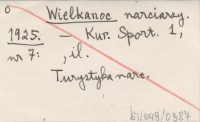 0
Wielkanoc narciarzy.
1925. — Kur. Sport. 1,
nr 7: , il.
Turystyka narc.